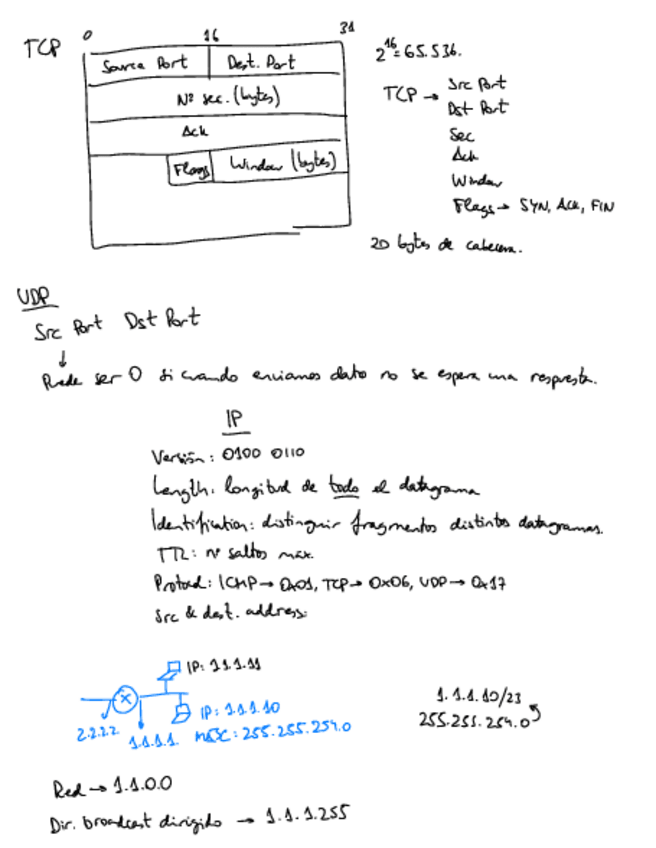 TCP
0 16 31
Source Port Dest. Port
Nº sec. (bytes)
Ack
Flags Window (bytes)
2^16 = 65.536.
TCP → Src Port
Dst Port
Sec
Ack
Window
Flags → SYN, Ack, FIN
20 bytes de cabecera.
UDP
Src Port Dst Port
↓
Puede ser 0 si cuando enviamos dato no se espera una respuesta.
IP
Versión: 0100 0110
Length: longitud de todo el datagrama
Identification: distinguir fragmentos distintos datagramas.
TTL: nº saltos máx.
Protocol: ICMP → 0x01, TCP → 0x06, UDP → 0x17
Src & dest. address:
IP: 1.1.1.11
IP: 1.1.1.10
2.2.2.2 1.1.1.1. MASC: 255.255.254.0
1.1.1.10/23
255.255.254.0
Red → 1.1.0.0
Dir. broadcast dirigido → 1.1.1.255